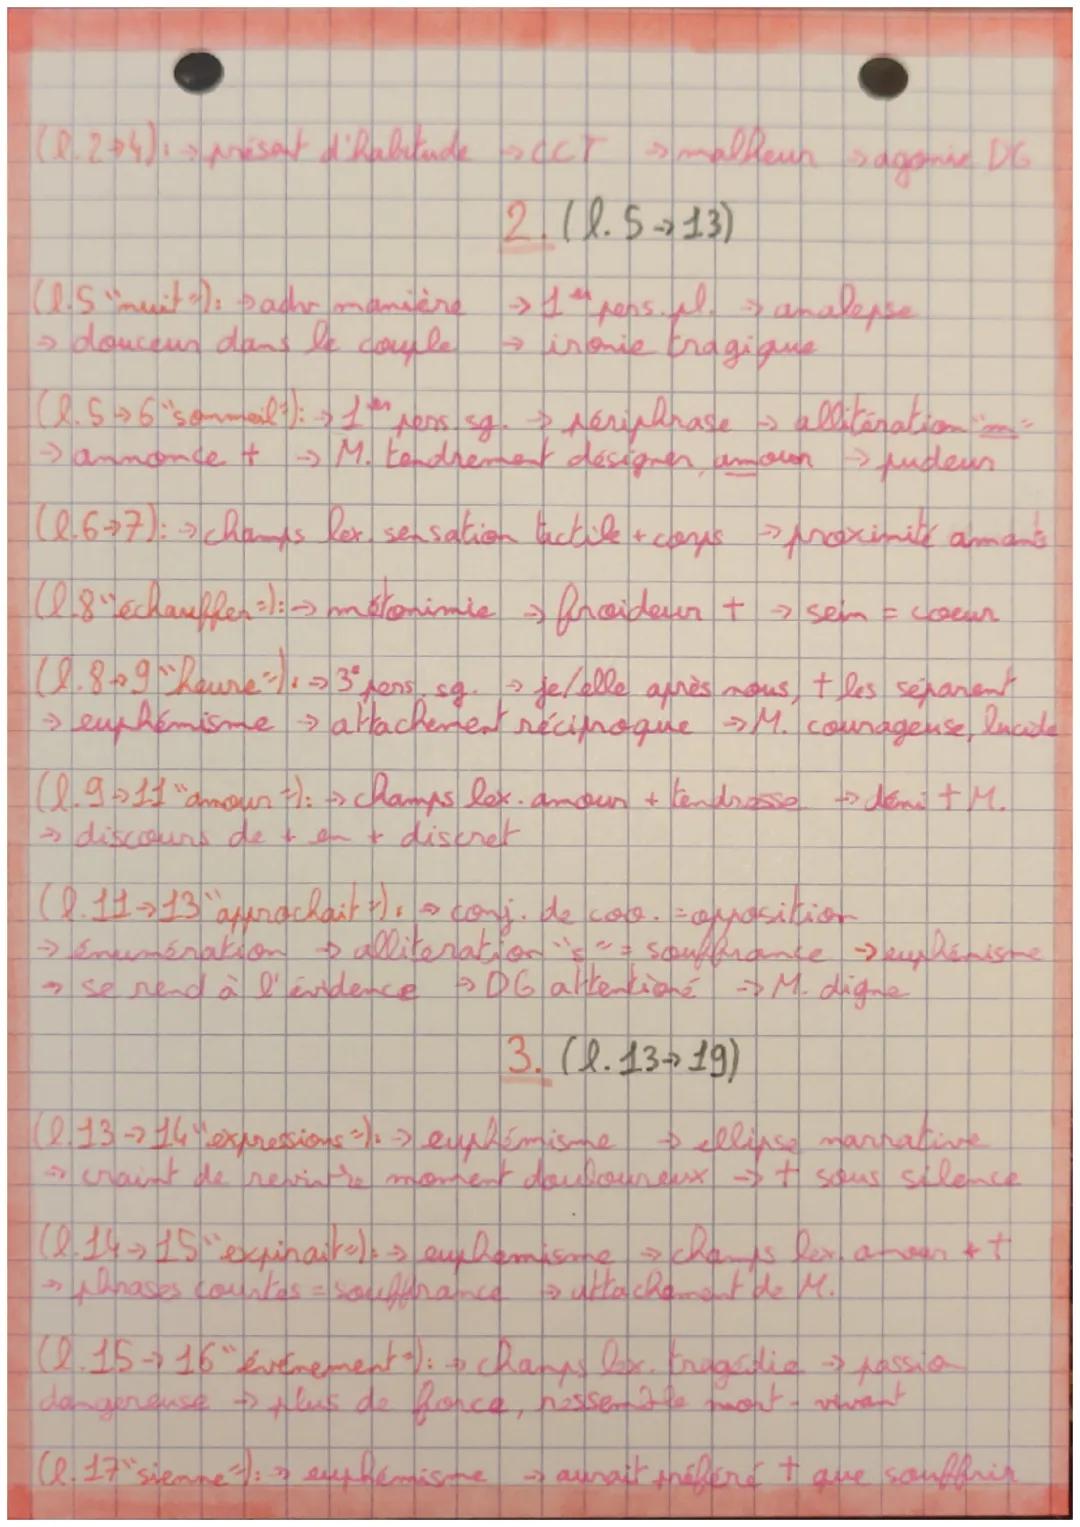 (l.2→4): → présent d'habitude → CCT → malheur → agonie DG
2. (l.5→13)
(l.5 "nuit"): → adv manière → 1ère pers. pl. → analepse
→ douceur dans le couple → ironie tragique
(l.5→6 "sommeil"): → 1ère pers. sg. → périphrase → allitération "m"
→ annonce † → M. tendrement désigner amour → pudeur
(l.6→7): → champs lex. sensation tactile + corps → proximité amants
(l.8 "échauffer"): → métonimie → froideur † → sein = coeur
(l.8→9 "heure"): → 3e pers. sg. → je/elle après nous, † les séparent
→ euphémisme → attachement réciproque → M. courageuse, lucide
(l.9→11 "amour"): → champs lex. amour + tendresse → déni † M.
→ discours de + en + discret
(l.11→13 "approchait"): → conj. de coo. = opposition
→ énumération → alliteration "s" = souffrance → euphémisme
→ se rend à l'évidence → DG attentioné → M. digne
3. (l.13→19)
(l.13→14 "expressions"): → euphémisme → ellipse narrative
→ craint de revivre moment douloureux → † sous silence
(l.14→15 "expirait"): → euphémisme → champs lex. amour + †
→ phrases courtes = souffrance → attachement de M.
(l.15→16 "événement"): → champs lex. tragédie → passio
dangereuse → plus de force, ressemble mort-vivant
(l.17 "sienne"): → euphémisme → aurait préféré † que souffrir